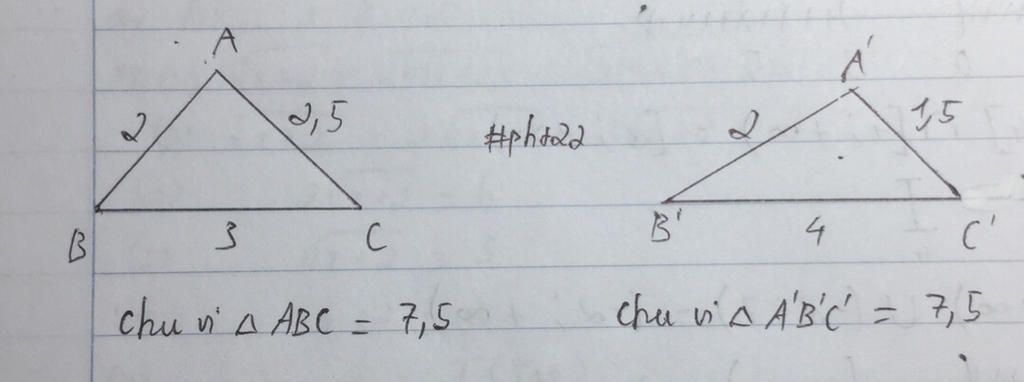 A
2
2,5
B
3
C
#pht22
A'
2
1,5
B'
4
C'
Chu vi △ ABC = 7,5
Chu vi △ A'B'C' = 7,5